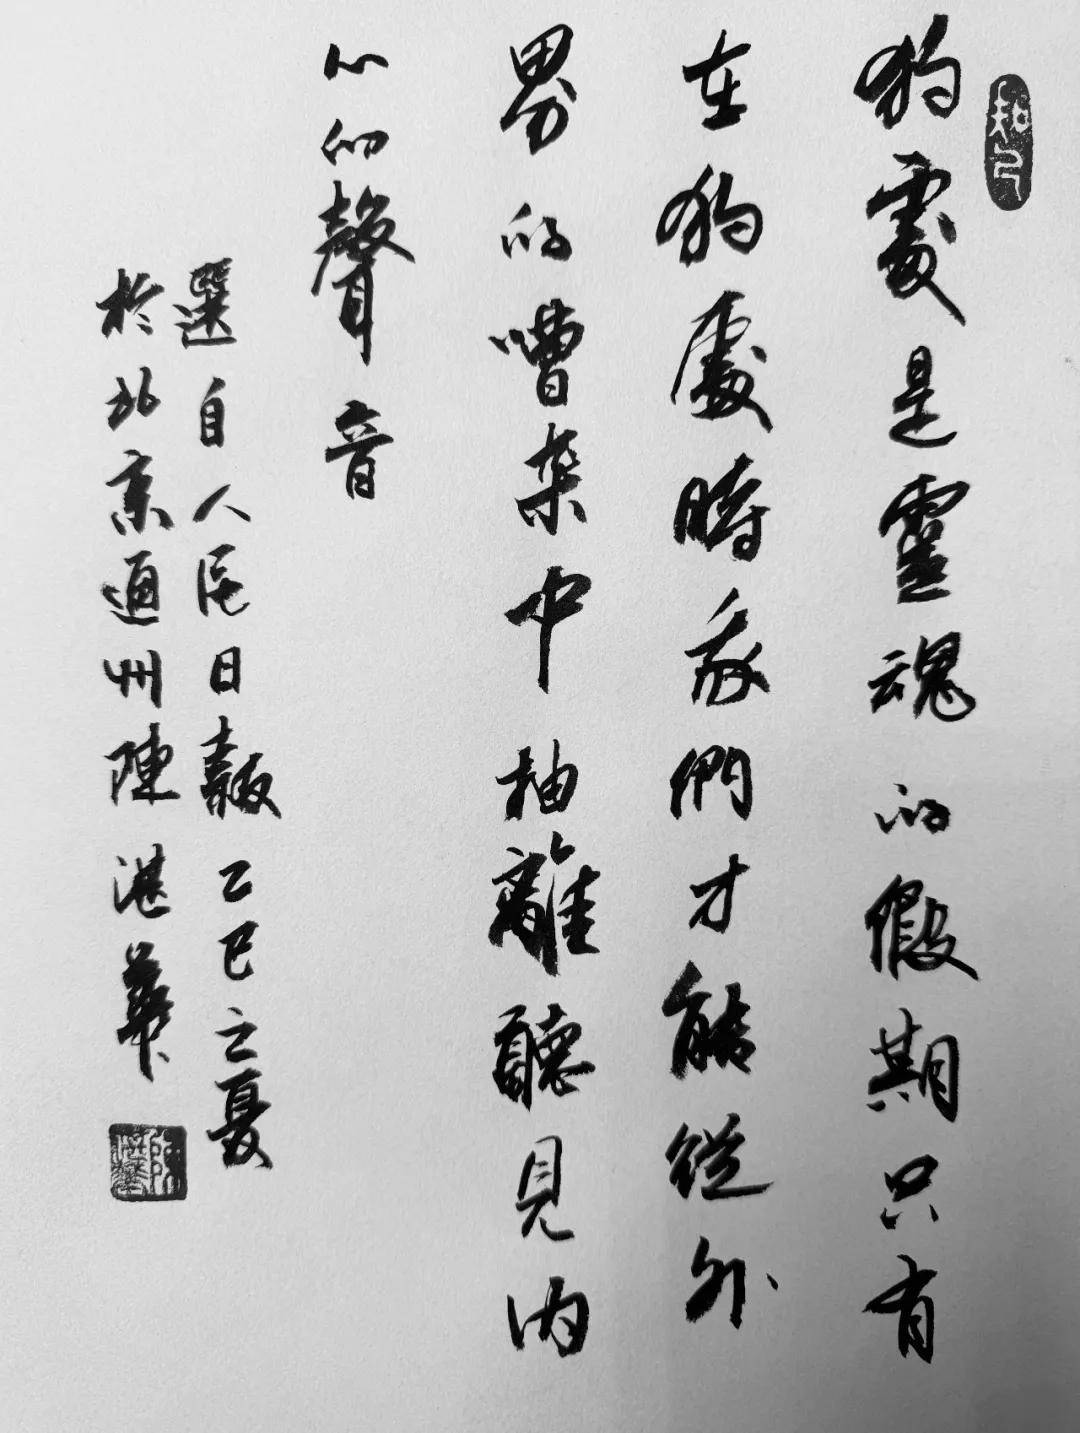 知己
獨處是靈魂的假期只有
在獨處時我們才能從外
界的嘈杂中抽離聽見內
心的聲音
選自人民日報乙巳之夏
於北京通州陳湛華
陳湛華